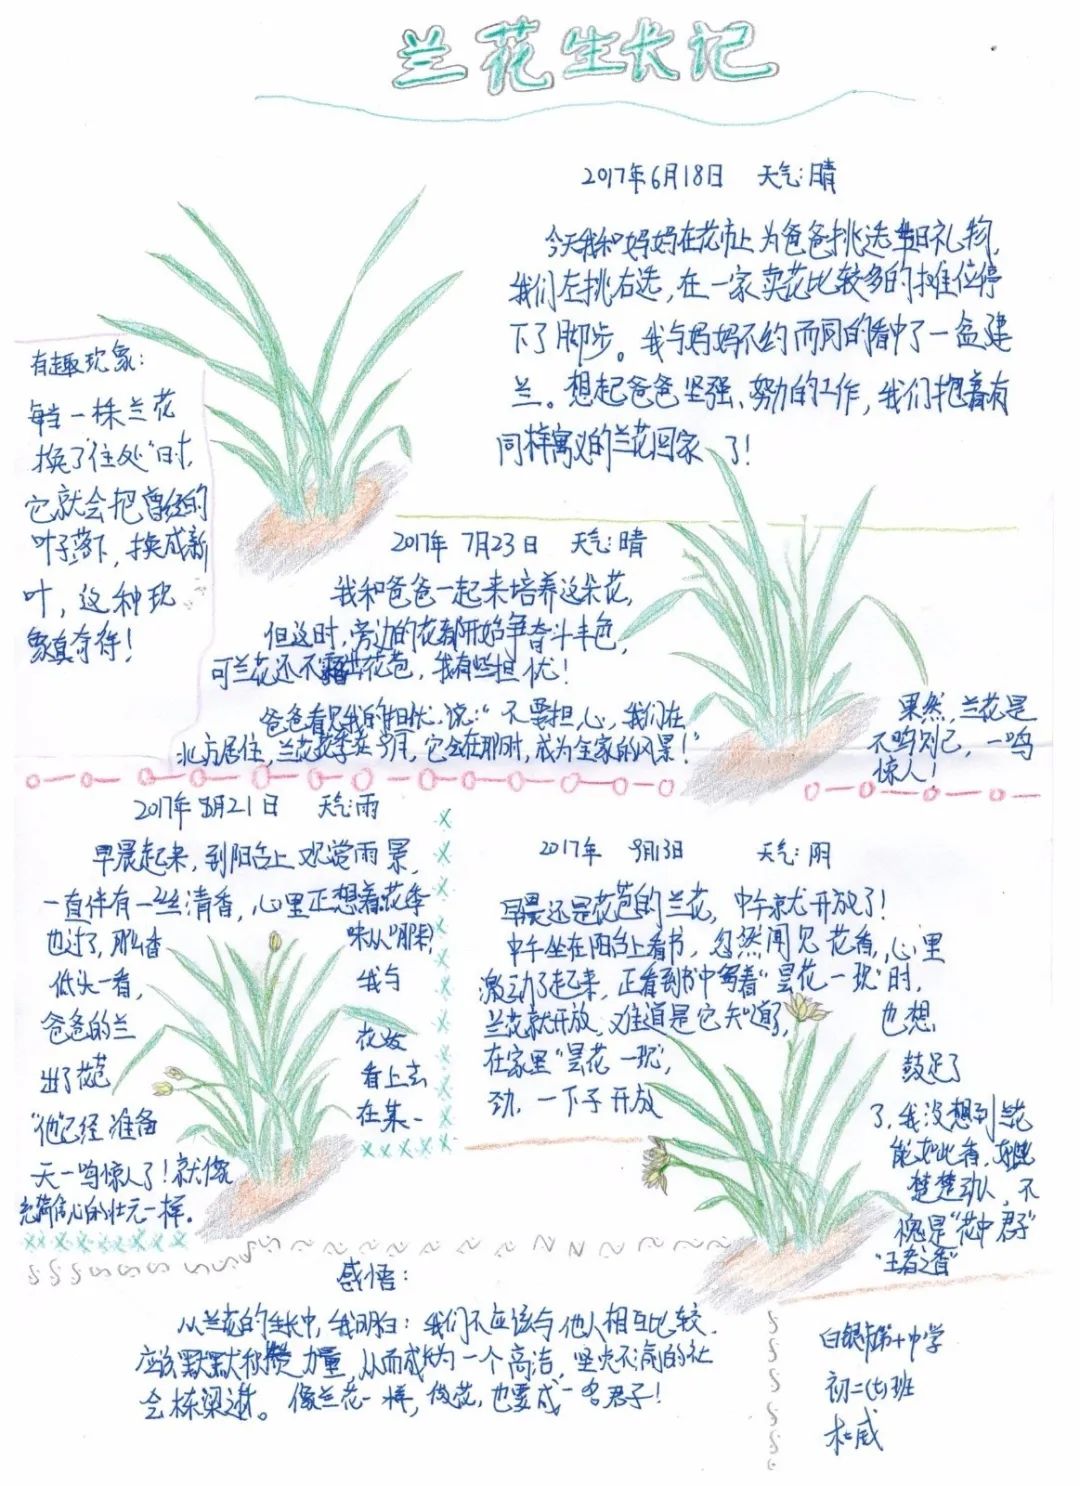 兰花生长记
2017年6月18日 天气:晴
今天我和妈妈在花市上为爸爸挑选生日礼物,
我们左挑右选,在一家卖花比较多的摊位停
下了脚步。我与妈妈不约而同的看中了一盆建
兰。想起爸爸坚强、努力的工作,我们抱着有
同样寓义的兰花回家了!
有趣现象:
每当一株兰花
换了"住处"时,
它就会把曾经的
叶子落下,换成新
叶,这种现
象真奇特!
2017年7月23日 天气:晴
我和爸爸一起来培养这朵花,
但这时,旁边的花都开始争奇斗丰色,
可兰花还不露出花苞,我有些担忧!
爸爸看见我的担忧,说:"不要担心,我们在
北方居住,兰花花季在9月,它会在那时,成为全家的风景!"
果然,兰花是
不鸣则已,一鸣
惊人!
2017年8月21日 天气:雨
早晨起来,到阳台上观赏雨景,
一直伴有一丝清香,心里正想着花季
也过了,那么香 味从"哪来"
低头一看, 我与
爸爸的兰 花发
出了花苞 看上去
"他"已经准备 在某一
天一鸣惊人了!就像
充满信心的壮元一样。
2017年 9月13日 天气:阴
早晨还是花苞的兰花,中午就开放了!
中午坐在阳台上看书,忽然闻见花香,心里
激动了起来,正看到书中写着"昙花一现"时,
兰花就开放,难道是它知道了, 也想
在家里"昙花一现", 鼓足了
劲,一下子开放
了,我没想到兰花
能如此香,
楚楚动人,不
愧是"花中君子"
"王者之香"
感悟:
从兰花的生长中,我明白:我们不应该与他人相互比较,
应该默默积攒力量,从而成为一个高洁,坚贞不渝的社
会栋梁。像兰花一样,俊花,也要成一名君子!
白银市第十中学
初二(七)班
杜威